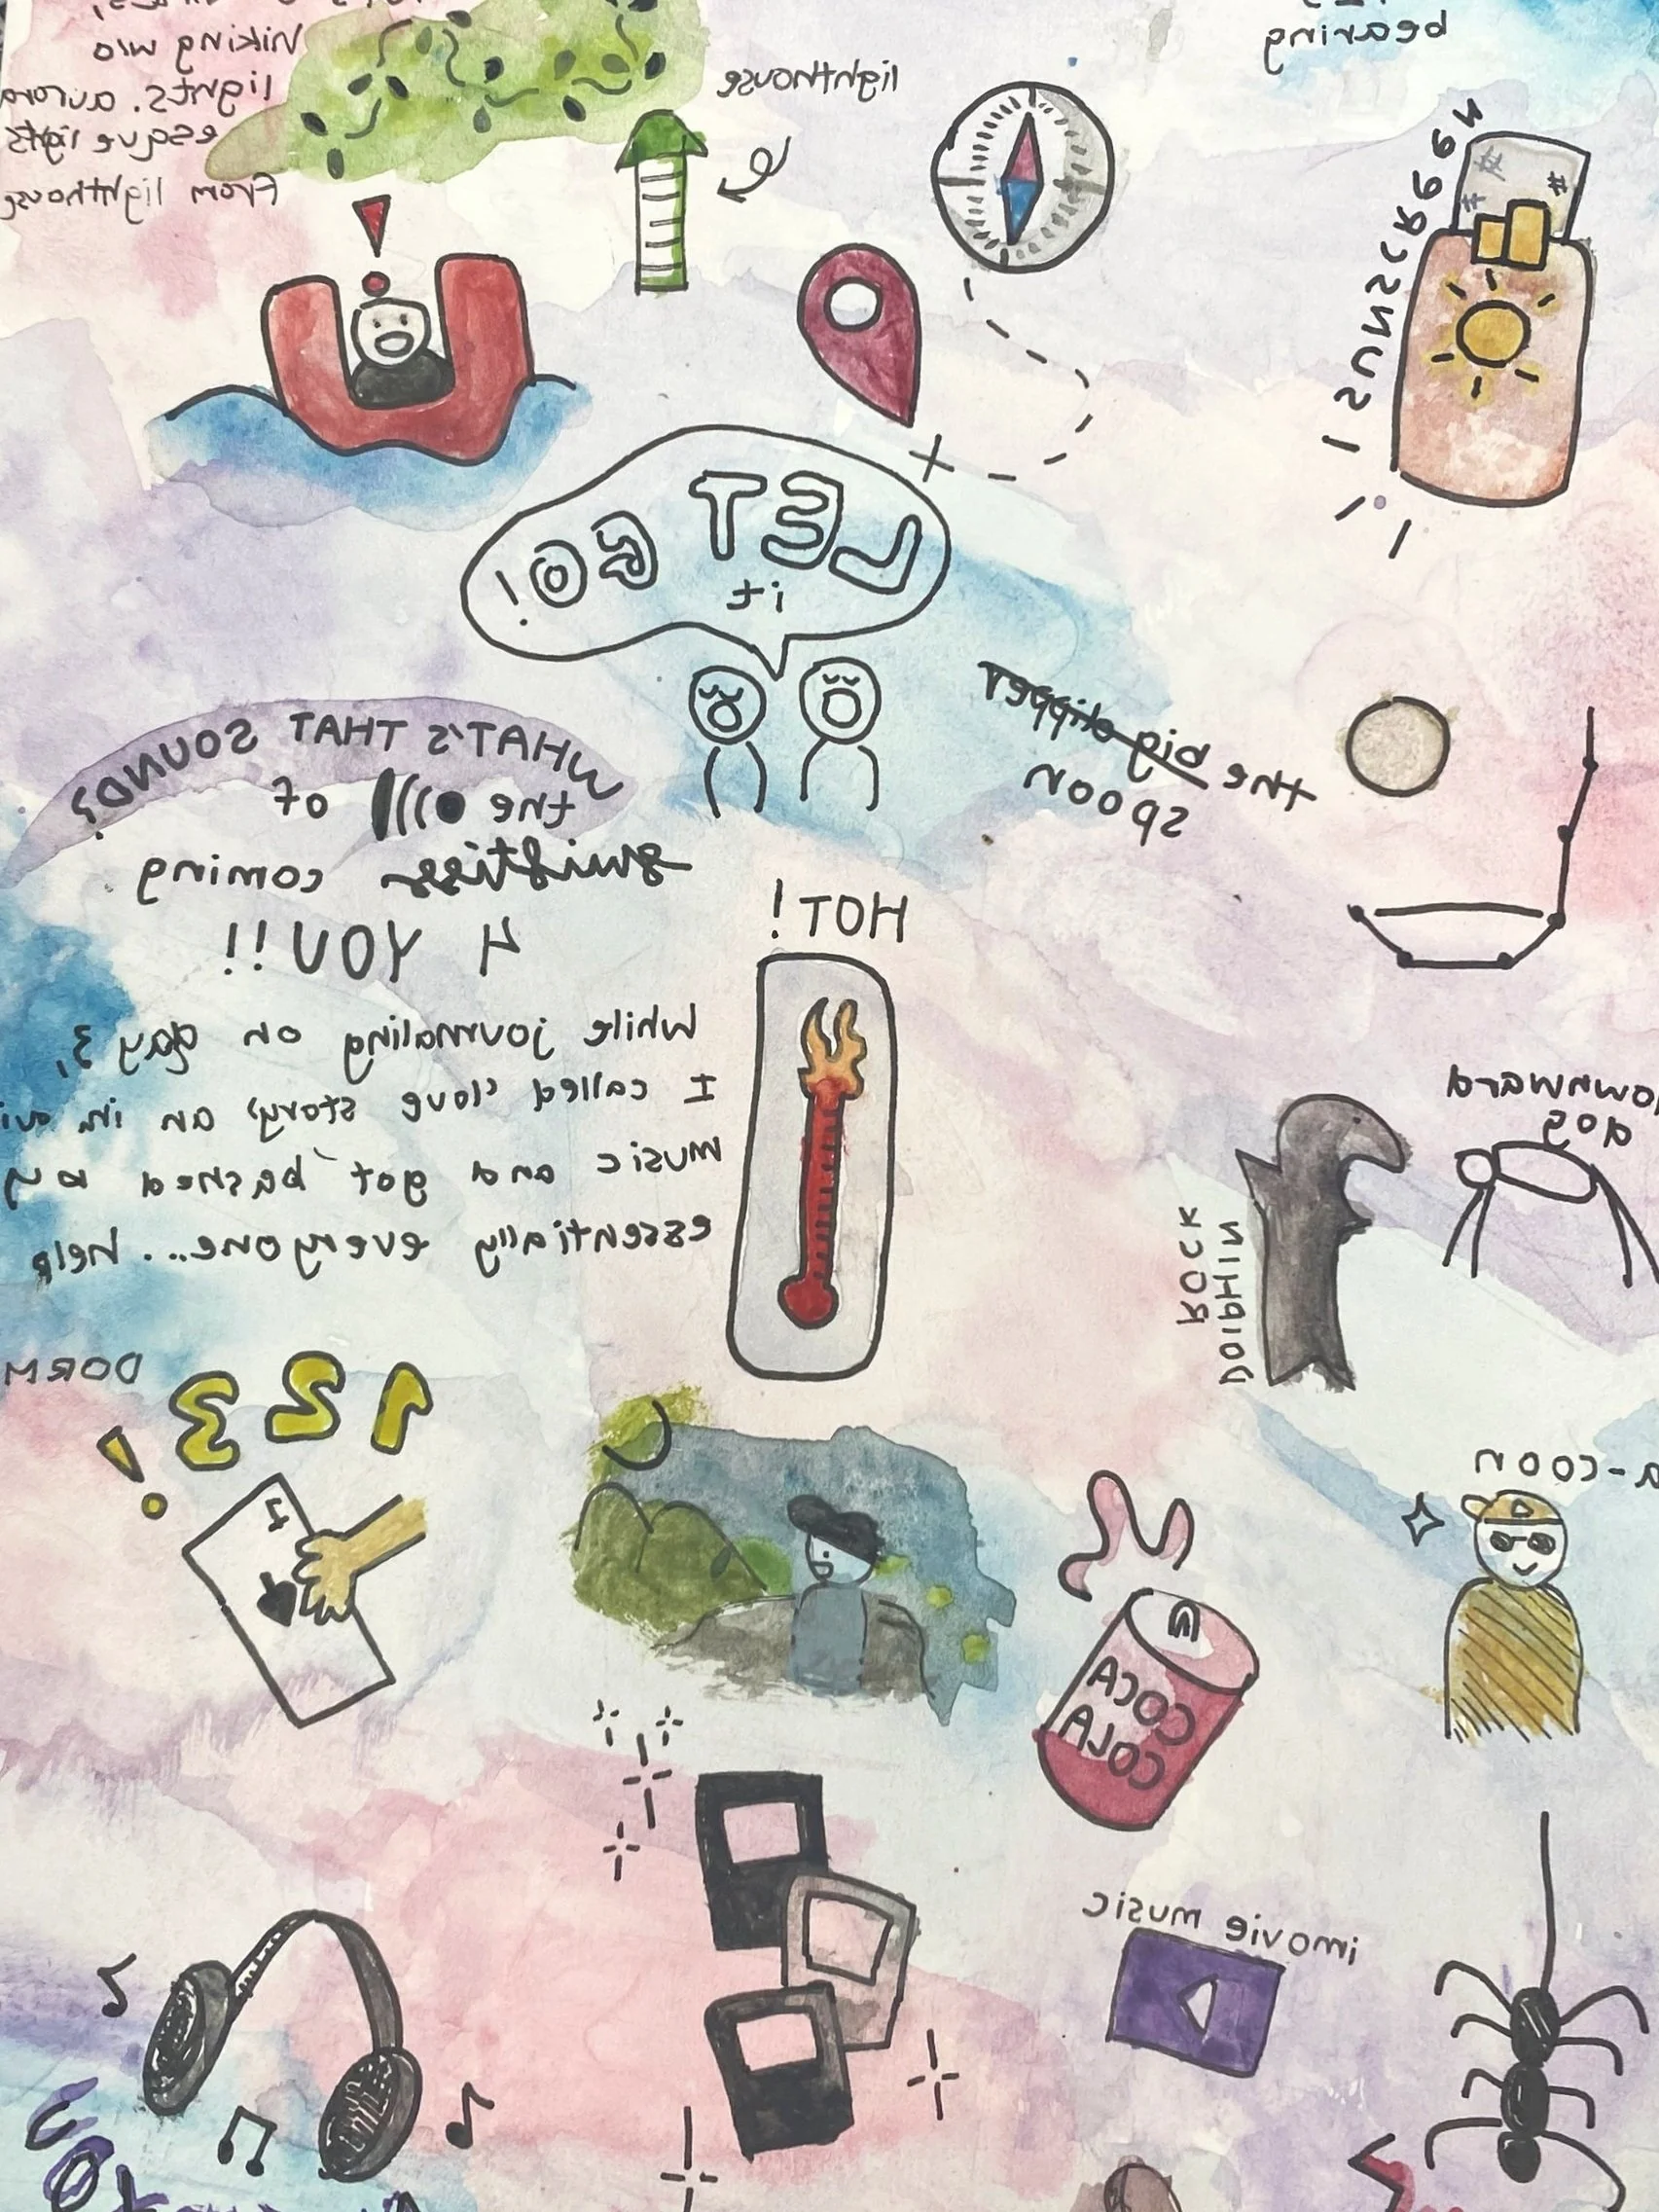 bearing
hiking w/o
lights. aurora
esque lights
from lighthouse
lighthouse
SUNSCREEN
LET
it
GO!
the big dipper
spoon
WHAT'S THAT SOUND?
the of
swifties coming
4 YOU!!!
HOT!
While journaling on day 3,
I called 'love story' an im
music and got bashed by
essentially everyone... help
downward
dog
ROCK
DOlPHIN
DORM
1 2 3!
1
a-coon
COCA
COLA
imovie music